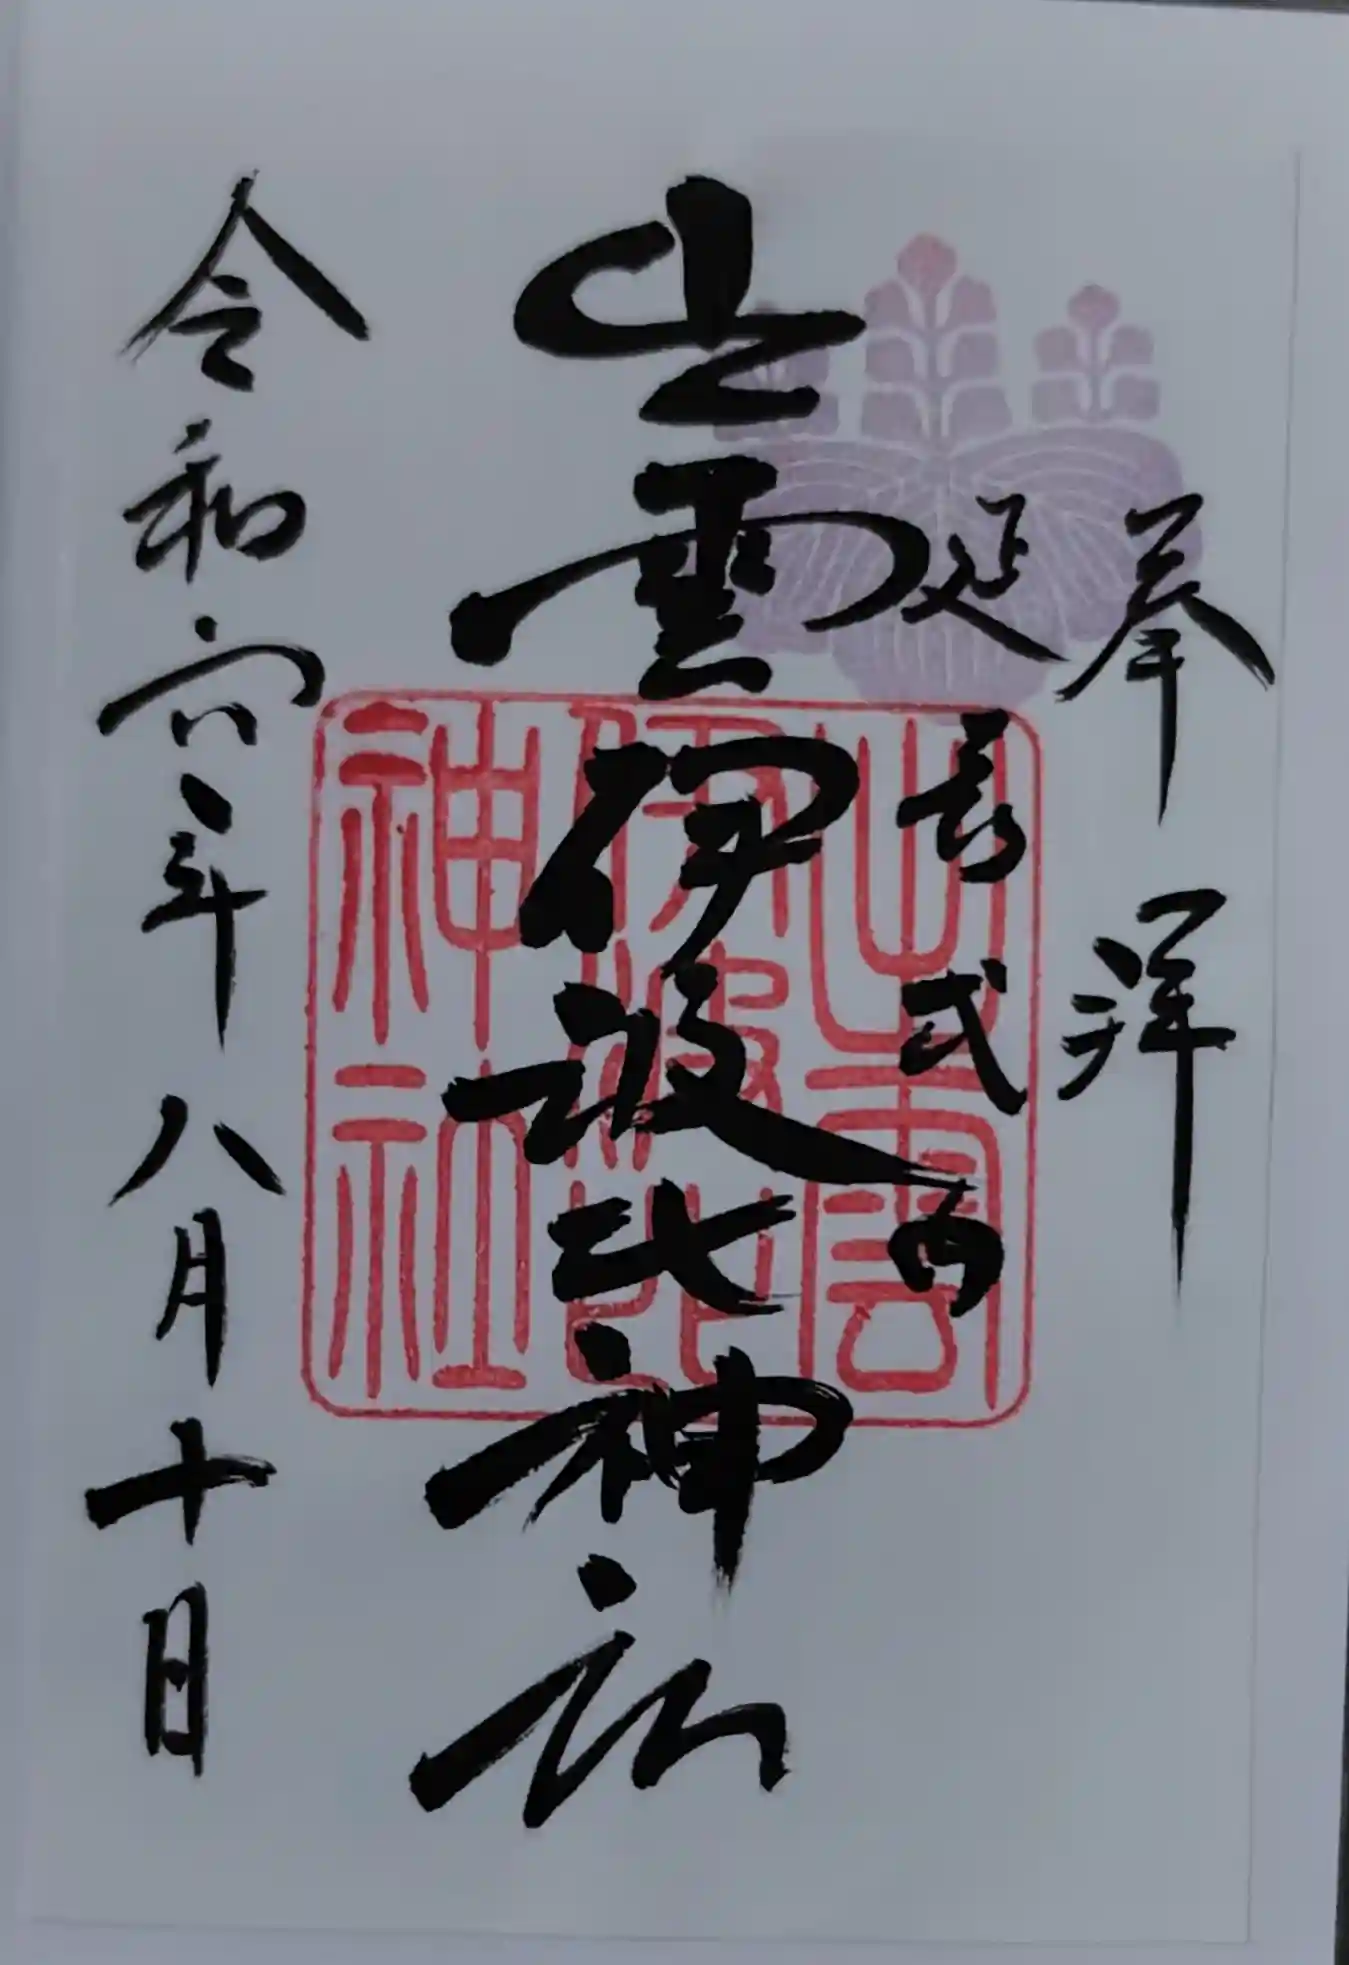 奉拝
延喜式内
出雲伊波比神社
令和六年八月十日
出雲
伊波比
神社